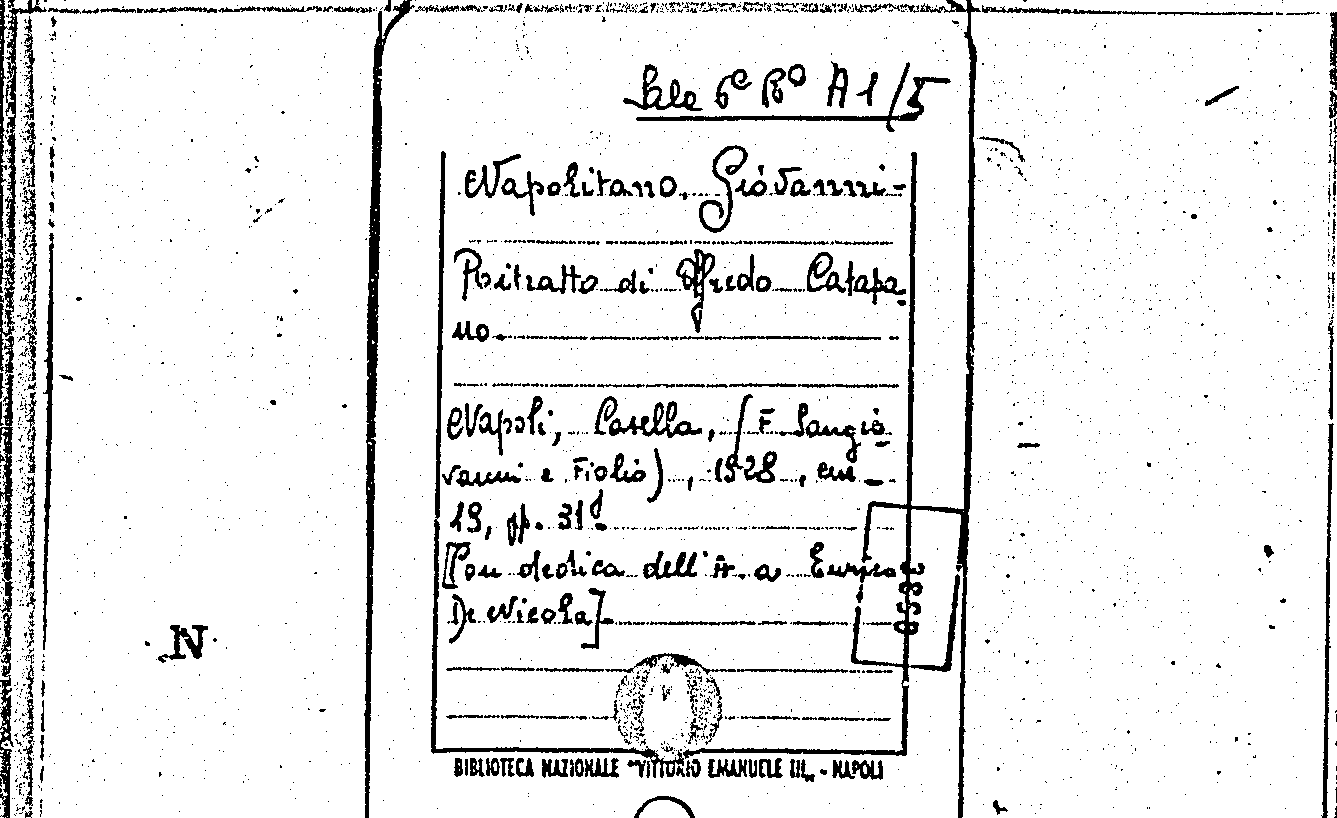 Sala 6ª Bº A 1/5
Napolitano, Giovanni-
Ritratto di Alfredo Catapa-
no.
Napoli, Casella, (F. Sangio-
vanni e Figlio), 1928, cm
19, pp. 31.
[Con dedica dell'A. a Enrico
De Nicola].
N
BIBLIOTECA NAZIONALE "VITTORIO EMANUELE III„ - NAPOLI